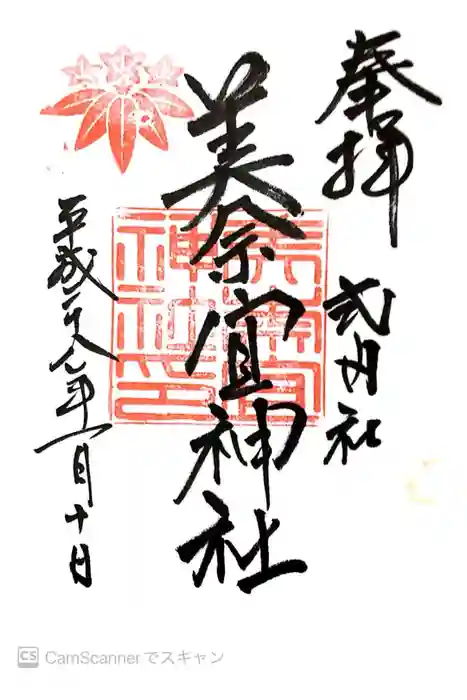 奉拝
式内社
美奈宜神社
美奈宜神社印
平成二十八年一月十日
CS CamScannerでスキャン